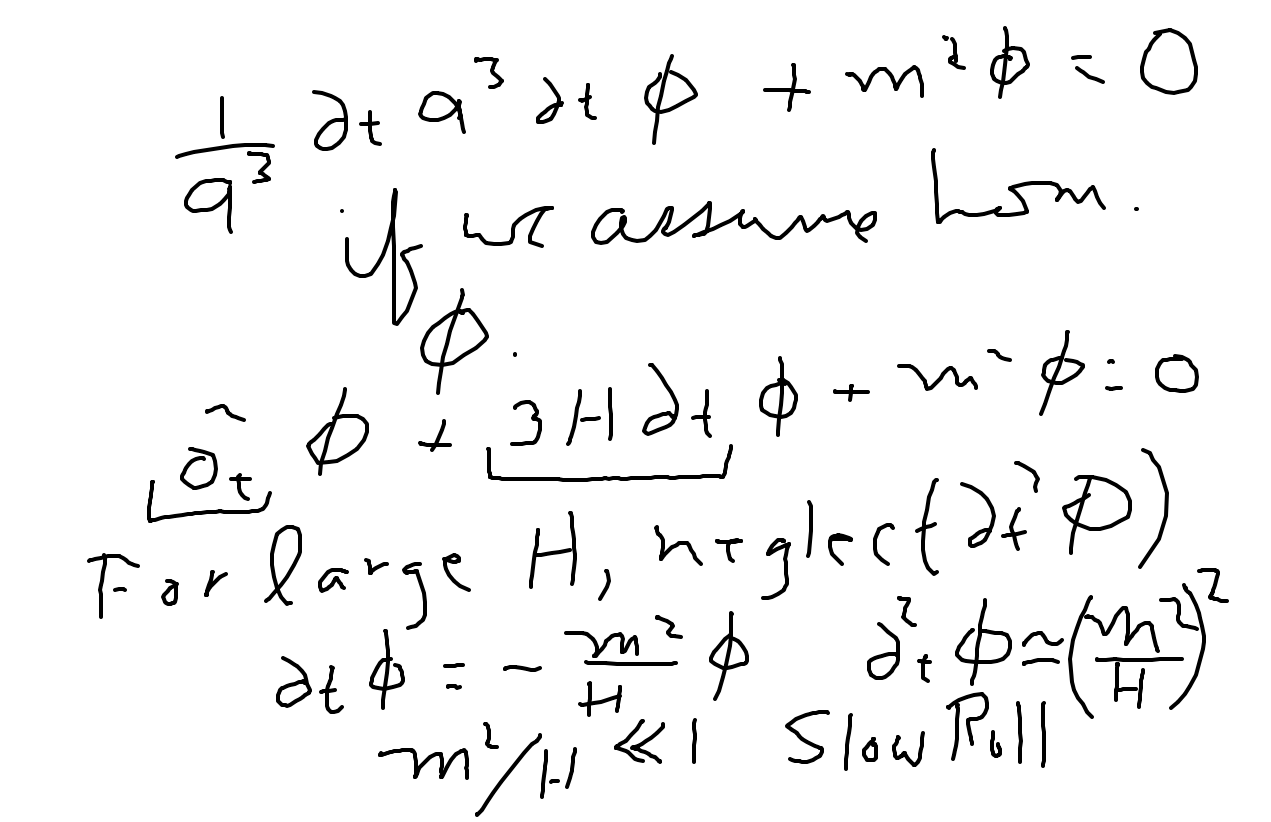 1/a³ ∂t a³ ∂t ϕ + m² ϕ = 0
if we assume hom.
ϕ.
∂t² ϕ + 3H∂t ϕ + m² ϕ = 0
For large H, neglect (∂t² ϕ)
∂t ϕ = - m²/H ϕ ∂²t ϕ ≃ (m²/H)²
m²/H ≪ 1 Slow Roll